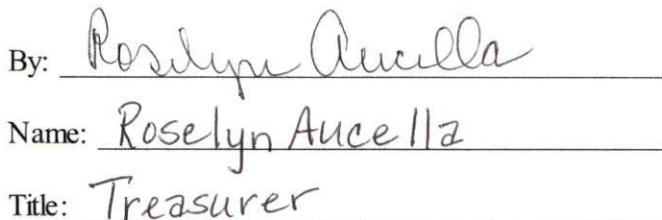 By: Roselyn Aucella
Name: Roselyn Aucella
Title: Treasurer